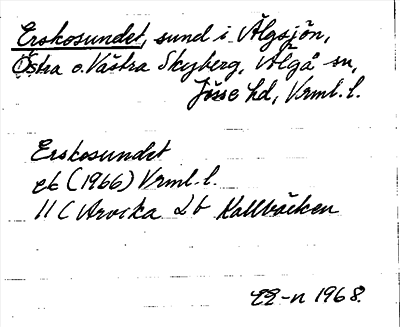 Erskosundet, sund i Älgsjön,
Östra o. Västra Skyberg, Älgå sn,
Jösse hd, Vrml. l.
Erskosundet
eb (1966) Vrml. l.
11 C Arvika 2 b Kallbäcken
EE-n 1968.